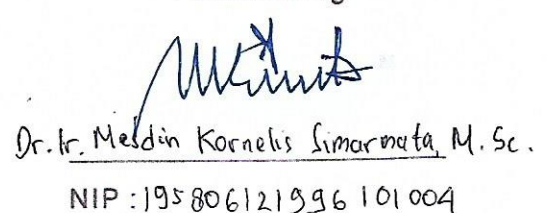 Dr. Ir. Mesdin Kornelis Simarmata, M. Sc.
NIP : 195806121996101004